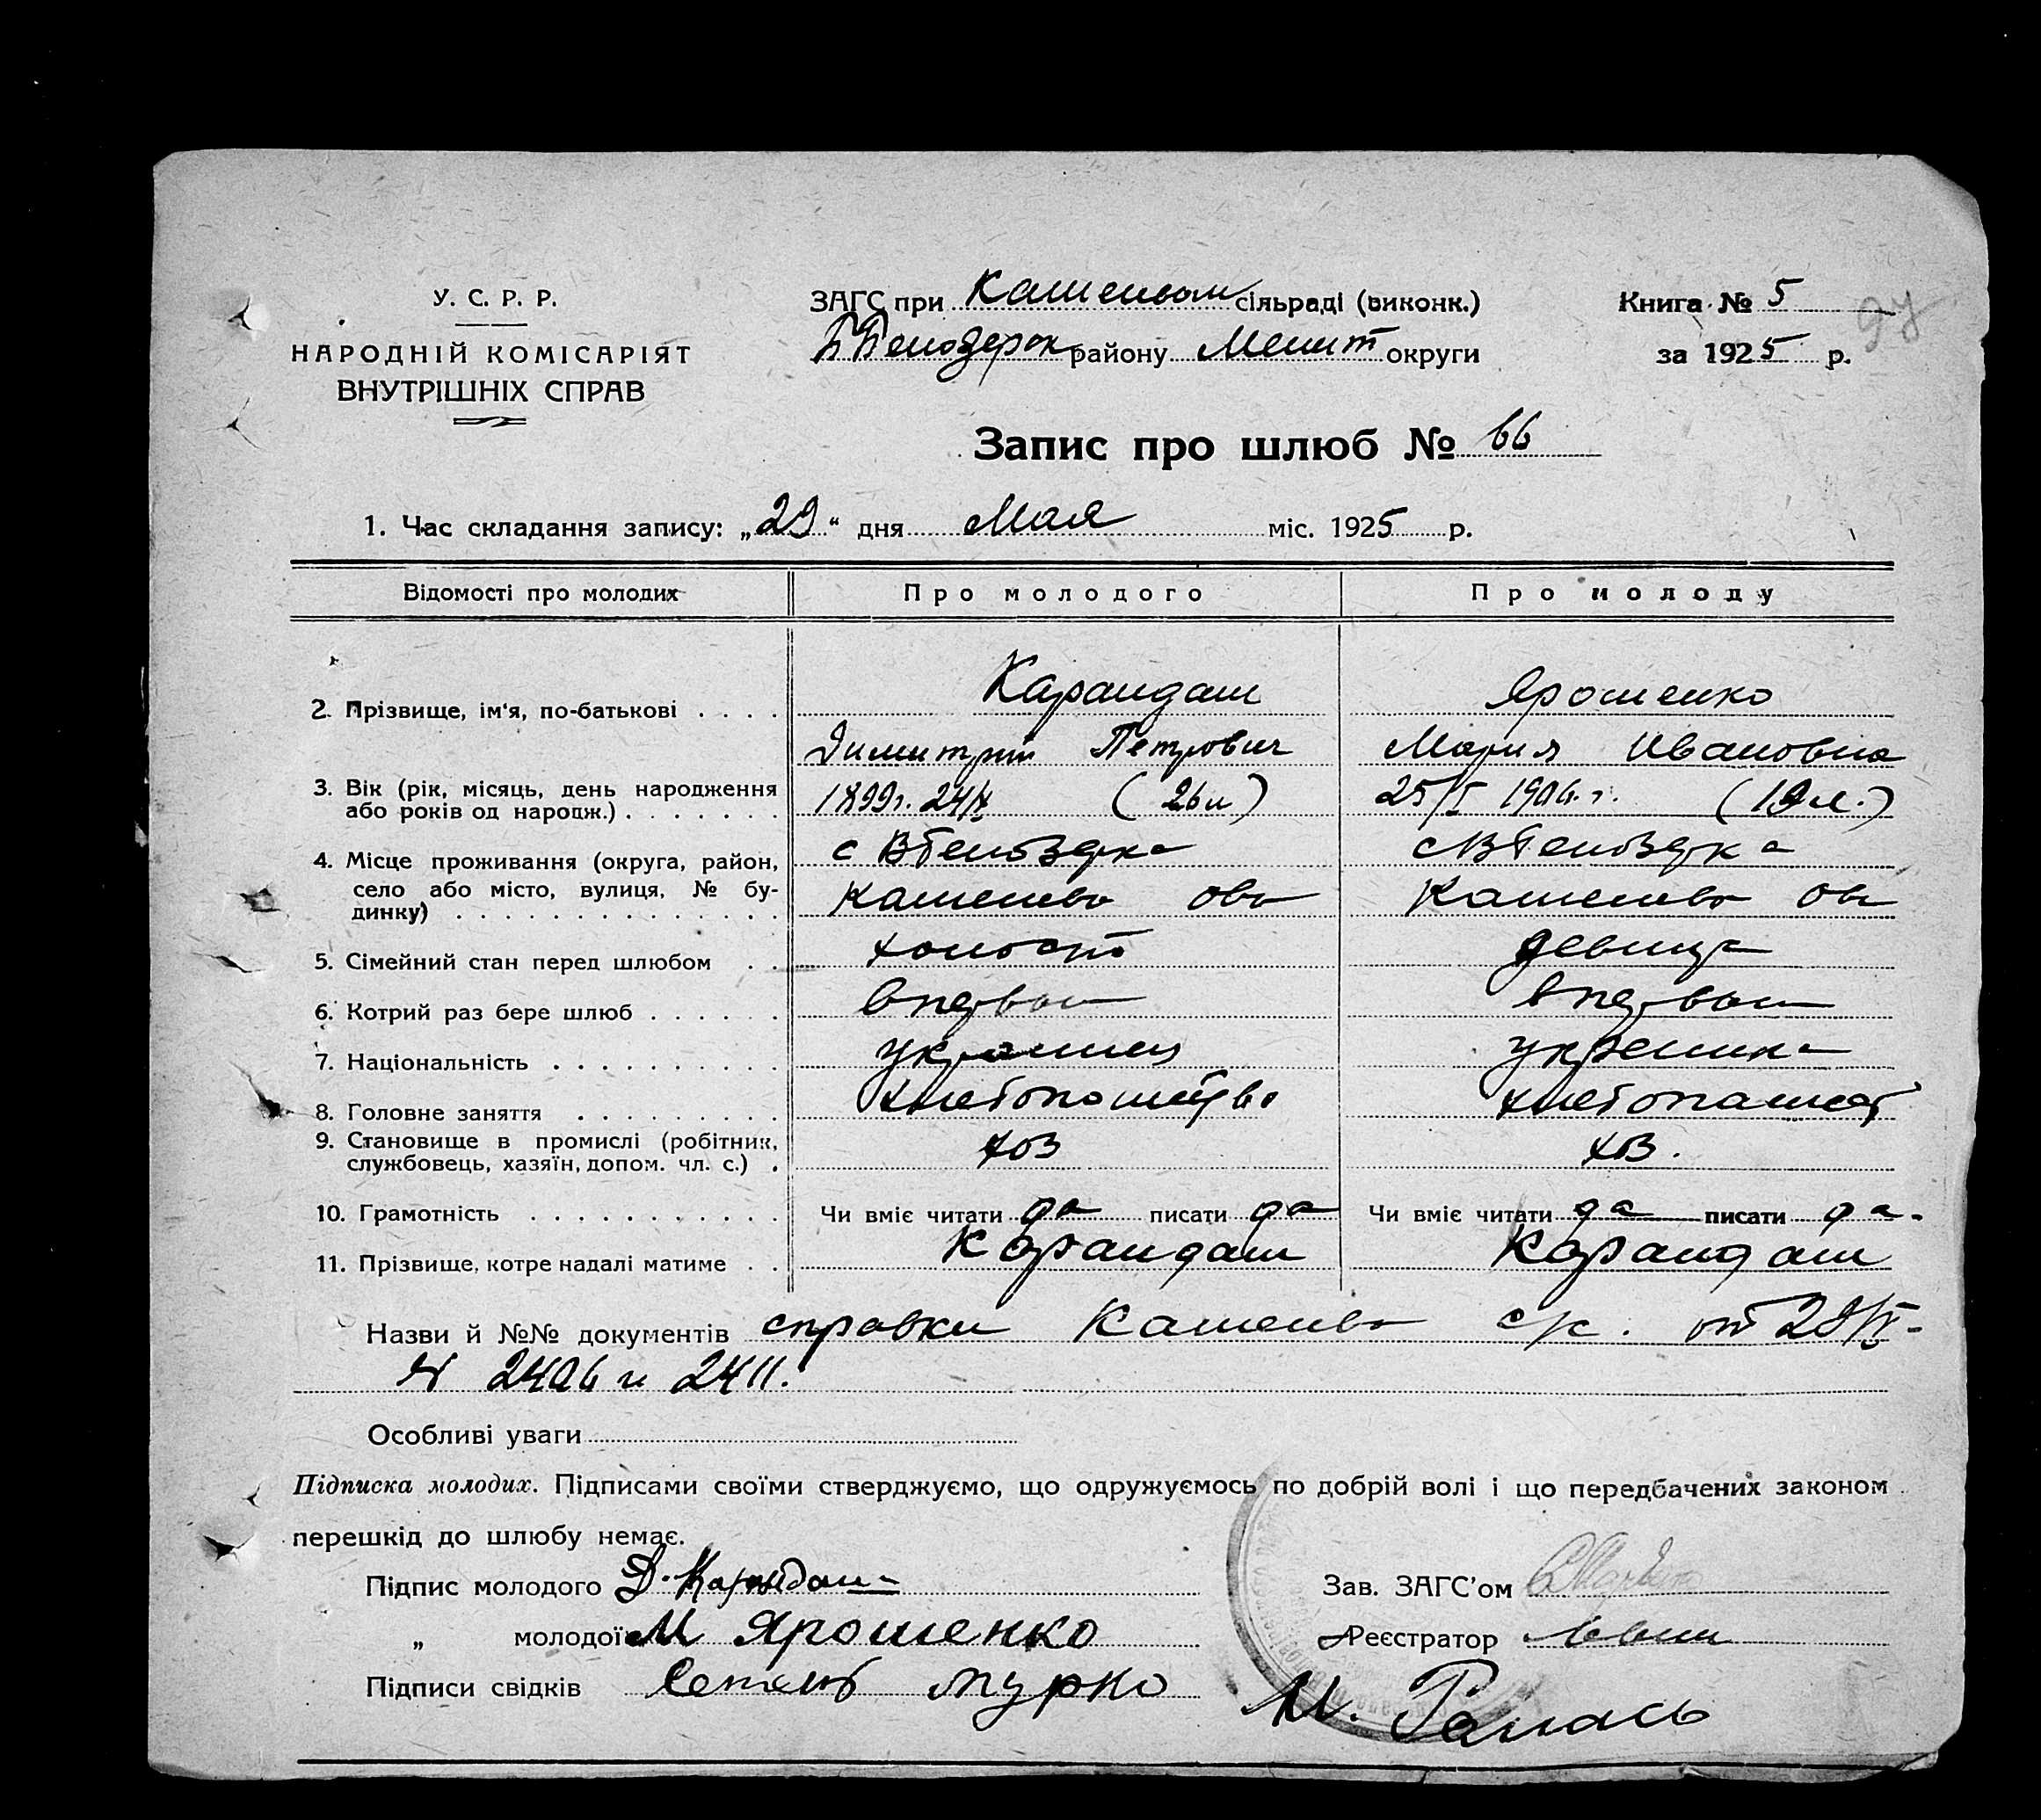 У. С. Р. Р.
НАРОДНІЙ КОМІСАРІЯТ
ВНУТРІШНІХ СПРАВ
ЗАГС при Каменьом сільраді (виконк.)
району Мелит округи
Книга № 5
за 1925 р.
97
Запис про шлюб № 66
1. Час складання запису: „29" дня Мая міс. 1925 р.
Відомості про молодих Про молодого Про молоду
2. Прізвище, ім'я, по-батькові . . . . Карандаш Ярошенко
Димитрий Петрович Мария Ивановна
3. Вік (рік, місяць, день народження 1899г. 24/X (26 л) 25/I 1906.г. (19 л.)
або років од народж.) . . . . . . .
4. Місце проживання (округа, район, с В Белозерка с В Белозерка
село або місто, вулиця, № бу- Каменево Каменево
динку) . . . . . . . . . . . . . .
5. Сімейний стан перед шлюбом . . холост девица
6. Котрий раз бере шлюб . . . . . . впервой впервой
7. Національність . . . . . . . . . . украинец
8. Головне заняття . . . . . . . . . хлебопашество хлебопашест
9. Становище в промислі (робітник, хоз хоз.
службовець, хазяїн, допом. чл. с.) .
10. Грамотність . . . . . . . . . . . Чи вміє читати да писати да Чи вміє читати да писати да.
11. Прізвище, котре надалі матиме . . Карандаш Карандаш
Назви й №№ документів справки Каменьво с/с. от 29/V-
N 2406 и 2411.
Особливі уваги
Підписка молодих. Підписами своїми стверджуємо, що одружуємось по добрій волі і що передбачених законом
перешкід до шлюбу немає.
Підпис молодого Д. Карандаш Зав. ЗАГС'ом
„ молодої М Ярошенко Реєстратор
Підписи свідків Мурко
М.